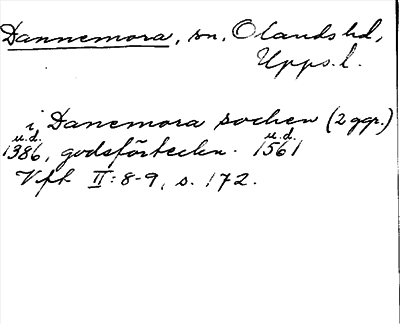 Dannemora, sn, Olands hd,
Upps. l.
i Danemora sochen (2 ggr.)
u.d. u.d.
1386, godsförteckn. 1561
Vft II: 8-9, s. 172.